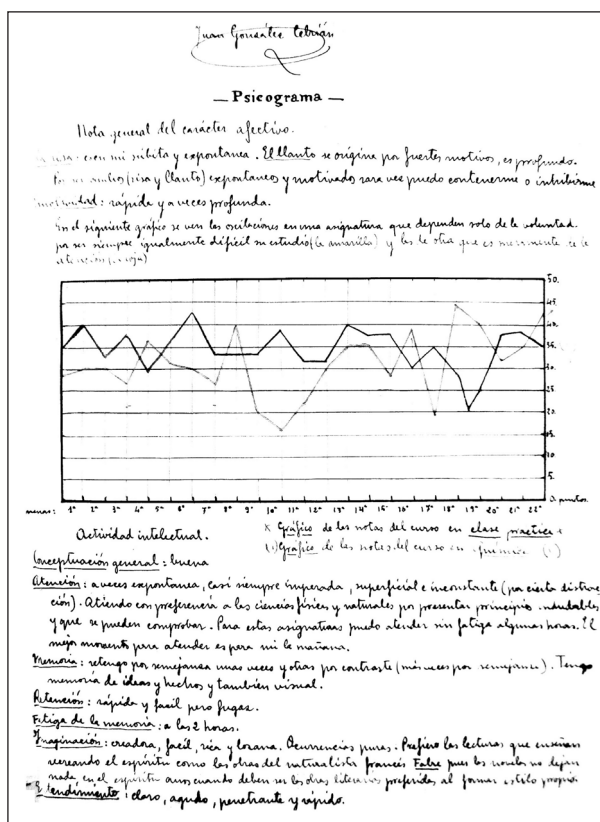 Juan González Cebrián
— Psicograma —
Nota general del carácter afectivo.
risa: es en mi súbita y expontanea. El llanto se origina por fuertes motivos, es profundo.
ambos (risa y llanto) expontaneos y motivados rara vez puedo contenerme o inhibirme
rápida y a veces profunda.
En el siguiente gráfico se ven las oscilaciones en una asignatura que dependen solo de la voluntad.
por ser siempre igualmente difícil su estudio (la amarilla) y las de otra que es meramente de la
atención (roja)
50.
45.
40.
35.
30.
25.
20.
15.
10.
5.
0. puntos.
1ª 2ª 3ª 4ª 5ª 6ª 7ª 8ª 9ª 10ª 11ª 12ª 13ª 14ª 15ª 16ª 17ª 18ª 19ª 20ª 21ª 22ª
Actividad intelectual.
x Gráfico de las notas del curso en clase practica
(.) Gráfico de las notas del curso en química (.)
Conceptuación general: buena
Atención: a veces expontanea, casi siempre imperada, superficial e inconstante (por cierta distrac-
ción). Atiendo con preferencia a las ciencias físicas y naturales por presentar principios indudables
y que se pueden comprobar. Para estas asignaturas puedo atender sin fatiga algunas horas. El
mejor momento para atender es para mi la mañana.
Memoria: retengo por semejanza unas veces y otras por contraste (más veces por semejanza). Tengo
memoria de ideas y hechos y también visual.
Retención: rápida y facil pero fugaz.
Fatiga de la memoria: a las 2 horas.
Imaginación: creadora, facil, rica y lozana. Ocurrencias puras. Prefiero las lecturas que enseñan
recreando el espíritu como las obras del naturalista francés Fabre pues las novelas no dejan
nada en el espíritu aun cuando deben ser las obras literarias preferidas al formar estilo propio
Entendimiento: claro, agudo, penetrante y rápido.